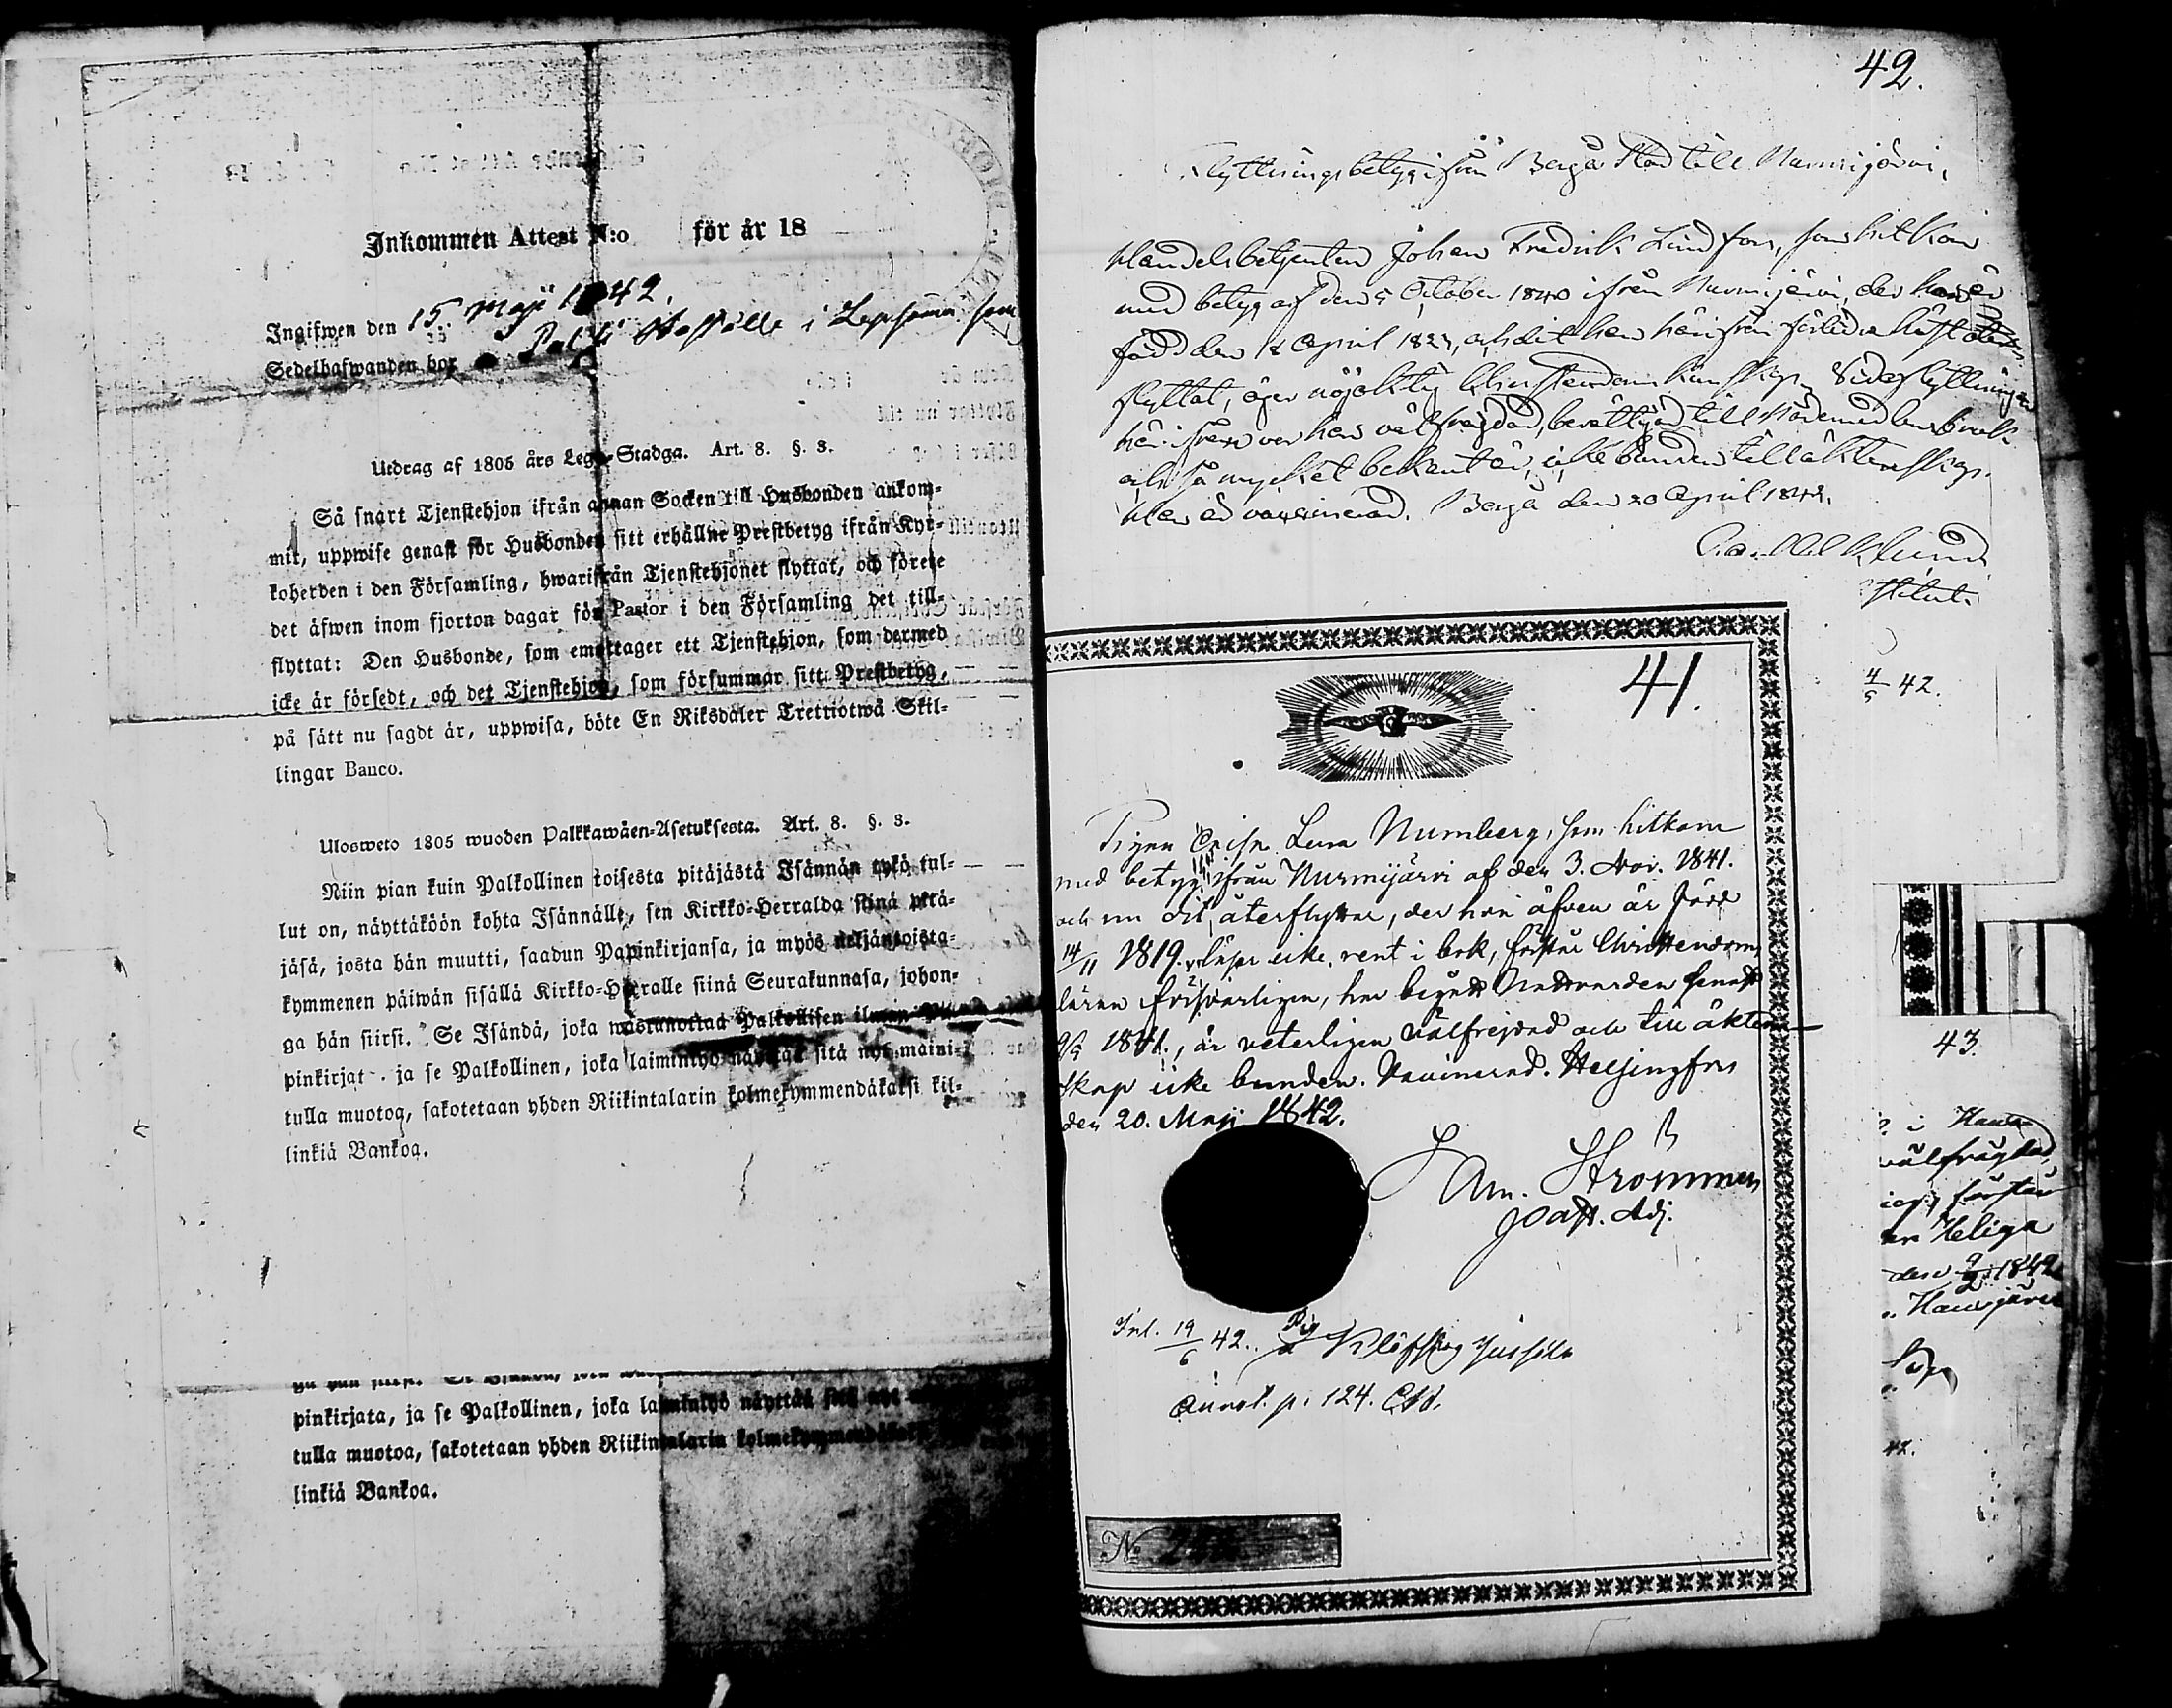 Inkommen Attest N:o för år 18
Ingifwen den 15. Maji 1842.
Sedelhafwanden bor i Lepsämä som
Utdrag af 1805 års Lego-Stadga. Art. 8. §. 3.
Så snart Tjenstehjon ifrån annan Socken till Husbonden ankom-
mit, uppwise genast för Husbonden sitt erhållne Prestbetyg ifrån Kyr-
koherden i den Församling, hwarifrån Tjenstehjonet flyttat, och förete
det äfwen inom fjorton dagar för Pastor i den Församling det till-
flyttat: Den Husbonde, som emottager ett Tjenstehjon, som dermed
icke är försedt, och det Tjenstehjon, som försummar sitt Prestbetyg,
på sätt nu sagdt är, uppwisa, böte En Riksdaler Trettiotwå Skil-
lingar Banco.
Ulosweto 1805 wuoden Palkkawäen-Asetuksesta. Art. 8. §. 3.
Niin pian kuin Palkollinen toisesta pitäjästä Isännän tykö tul-
lut on, näyttäköön kohta Isännälle, sen Kirkko-Herralda siinä pitä-
jäsä, josta hän muutti, saadun Papinkirjansa, ja myös neljäntoista-
kymmenen päiwän sisällä Kirkko-Herralle siinä Seurakunnasa, johon-
ga hän siirsi. Se Isändä, joka wastanottaa Palkollisen ilman Pa-
pinkirjat . ja se Palkollinen, joka laimintyö näyttää sitä nyt maini-
tulla muotoa, sakotetaan yhden Riikintalarin kolmekymmendäkaksi kil-
linkiä Bankoa.
pinkirjata, ja se Palkollinen, joka laimintyö näyttää sitä nyt
tulla muotoa, sakotetaan yhden Riikintalarin kolmekymmendäkaksi
linkiä Bankoa.
42.
Flyttningsbetyg ifrån Borgå Stad till Nurmijärvi.
Handelsbetjenten Johan Fredrik Lindfors, som hitkom
med betyg af den 5 October 1840 ifrån Nurmijärvi, der han är
född den 18 April 1823, och dit han härifrån förlidne höst åter
flyttat, äger nöjaktig Christendoms kunskap. Vid aflyttningen
härifrån var han välfrejdad, berättigad till Nattvardens bruk
och så mycket bekant är, icke bunden till äktenskap.
Han är vaccinerad. Borgå den 20 April 1842.
4/5 42.
41.
Pigan Lena Nurnberg, som hitkom
med betyg ifrån Nurmijärvi af den 3. Nov. 1841.
och nu dit återflyttar, der hon äfven är född
14/11 1819, läser icke rent i bok, förstår Christendoms
läran försvarligen, har begått Nattvarden senast
1841, är veterligen välfrejdad och till äkten-
skap icke bunden. Vaccinerad. Helsingfors
den 20. Maji 1842.
Am. Strömmer
Past. Adj.
Inl. 19/6 42.
Annot. p. 124.
No
43.
välfrägdad,
förstår
Heliga
den 1842
42.